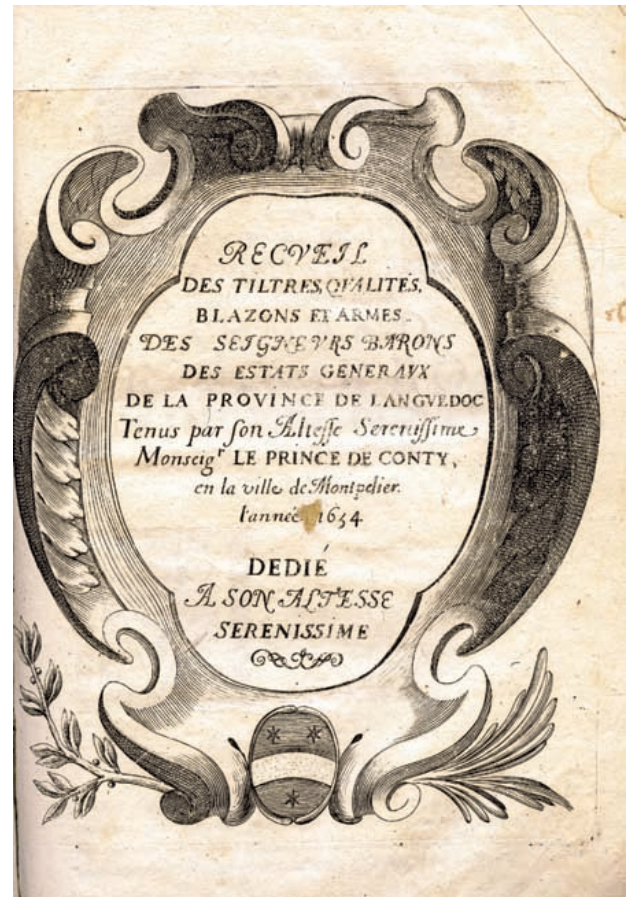 RECVEIL
DES TILTRES, QVALITÉS,
BLAZONS ET ARMES
DES SEIGNEVRS BARONS
DES ESTATS GENERAVX
DE LA PROVINCE DE LANGVEDOC
Tenus par son Altesse Serenissime
Monseigr LE PRINCE DE CONTY,
en la ville de Montpelier.
l'année 1654
DEDIÉ
A SON ALTESSE
SERENISSIME